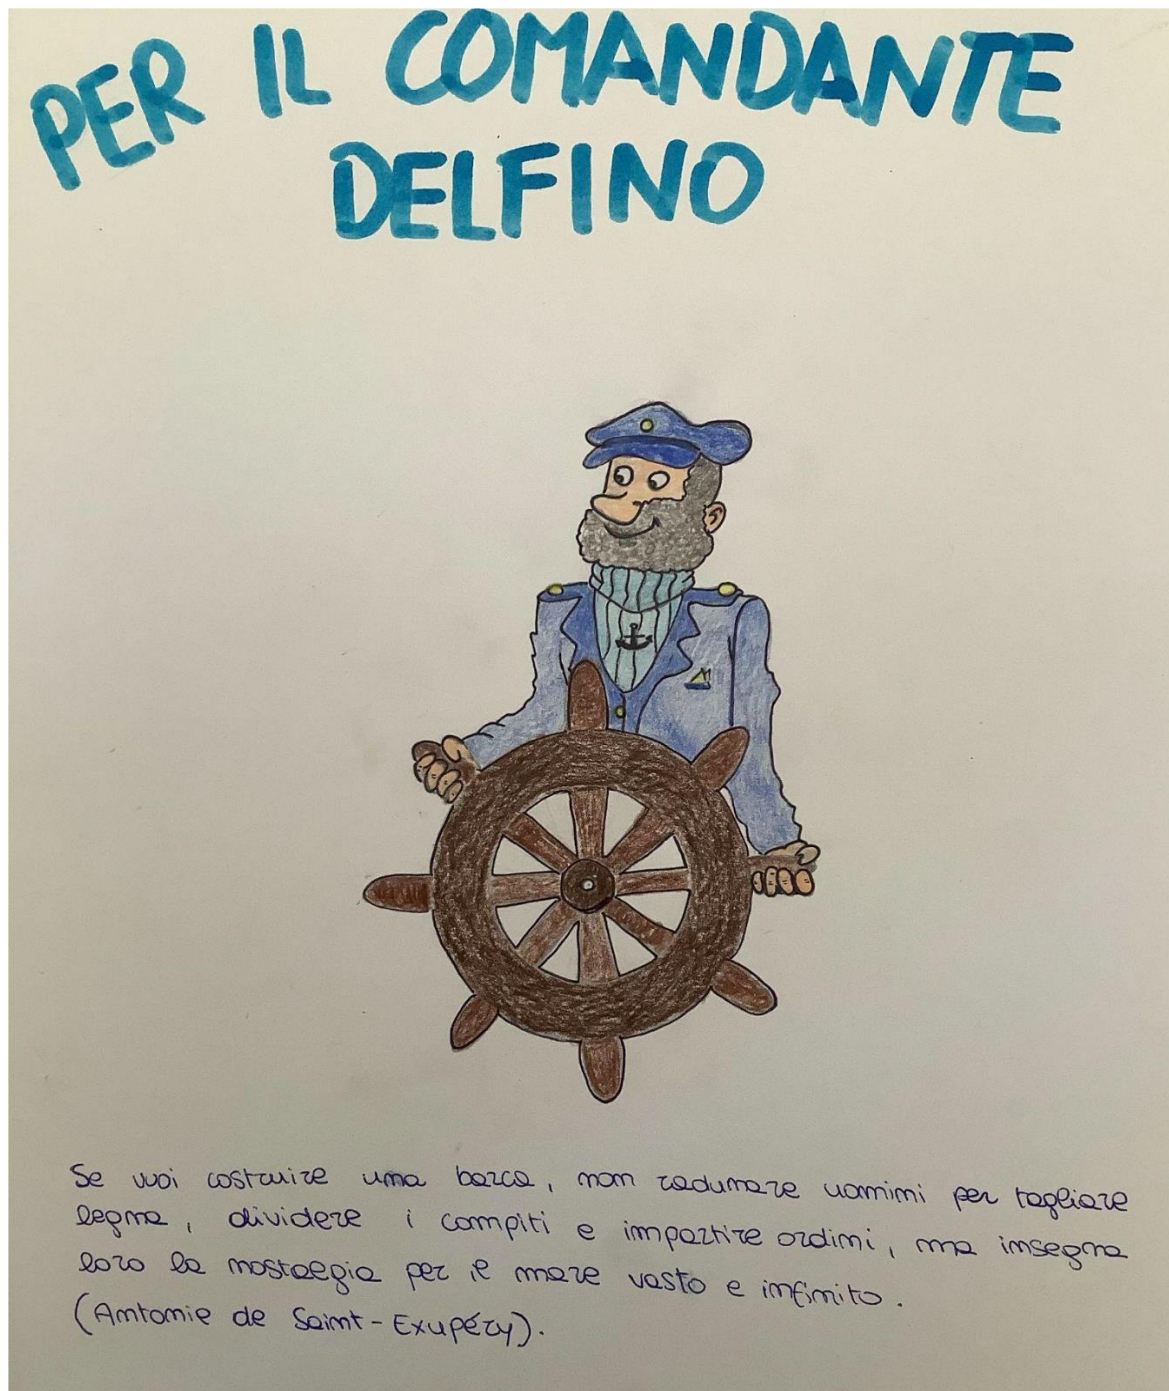 PER IL COMANDANTE
DELFINO
Se vuoi costruire una barca, non radunare uomini per tagliare
legna, dividere i compiti e impartire ordini, ma insegna
loro la nostalgia per il mare vasto e infinito.
(Antonie de Saint-Exupéry).